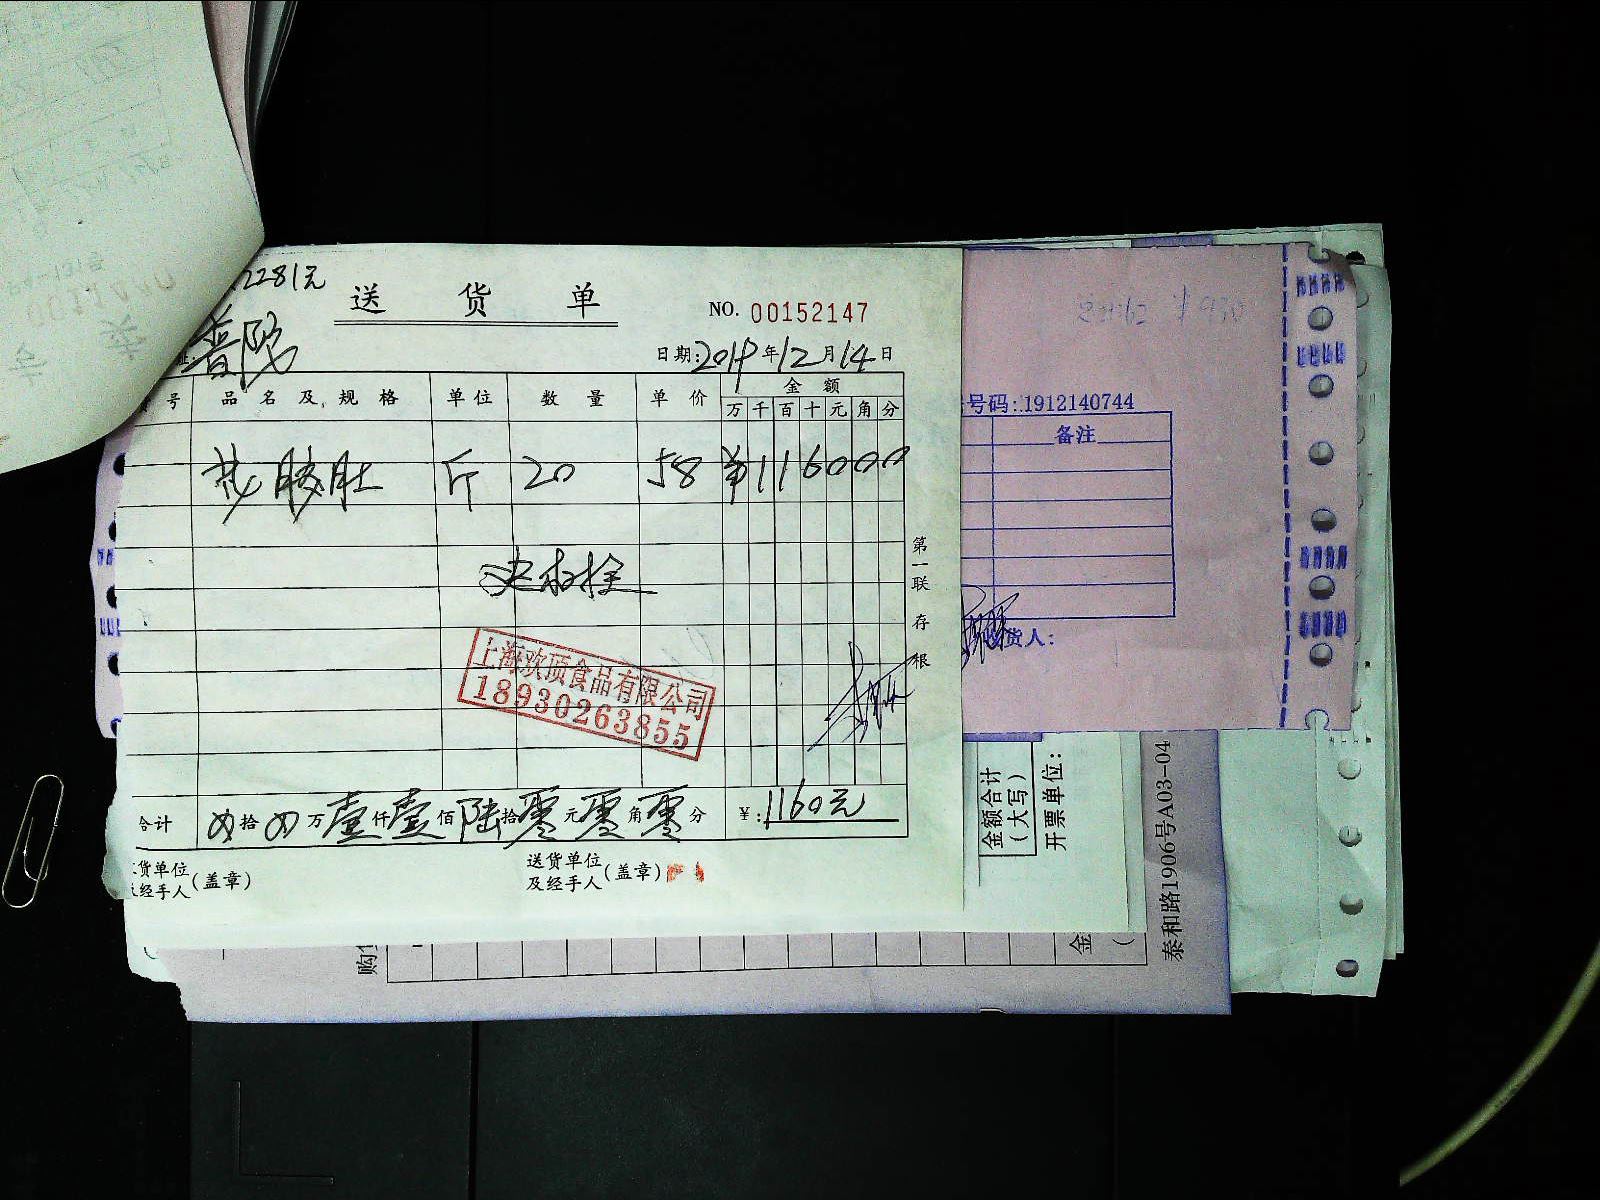 2281元
送 货 单
NO. 00152147
普陀
日期:2019年12月14日
号 品名及规格 单位 数量 单价 金额
万 千 百 十 元 角 分
斤 20 58 ¥116000
上海欢顶食品有限公司
18930263855
第一联 存根
合计 拾 万壹仟壹佰陆拾零元零角零分 ¥:1160元
货单位
及经手人(盖章)
送货单位
及经手人(盖章)
号码:1912140744
备注
货人:
金额合计
(大写)
开票单位:
泰和路1906号A03-04
购
金